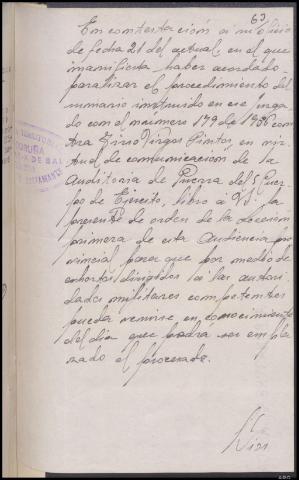 63
En contestación á su oficio
de fecha 21 del actual, en el que
manifiesta haber acordado
paralizar el procedimiento del
sumario instruido en ese juzga
do con el número 179 de 1936 con
tra Tirso Virgos Pintos, en vir
tud de comunicacion de la
Auditoria de Guerra del Cuer
po de Ejercito, libro á Vd. la
presente de orden de la Seccion
primera de esta Audiencia pro
vincial para que por medio de
exhortos dirigidos a las autori
dades militares competentes
pueda venirse en conocimiento
del dia que podrá ser empla
zado el procesado.
CORUÑA